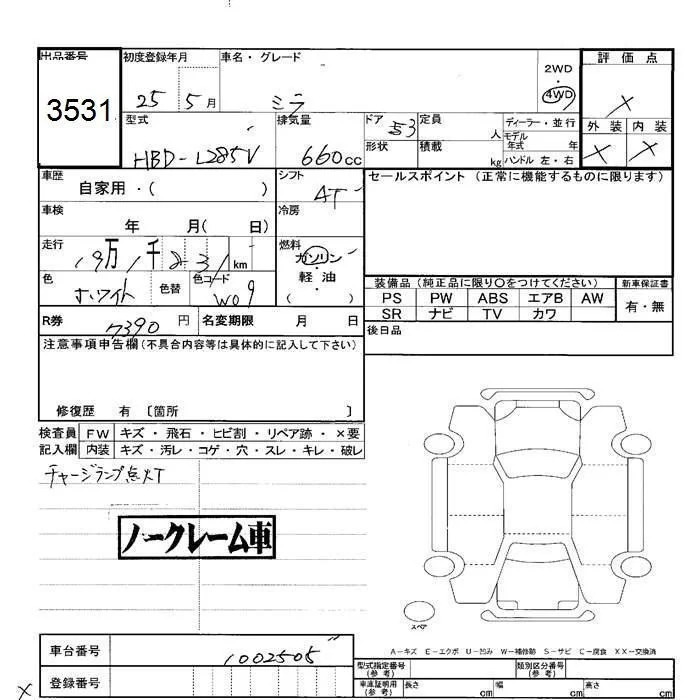 出品番号
3531
初度登録年月
25 5月
車名・グレード
ミラ
2WD
・
4WD
評価点
×
外装 内装
× ×
型式
HBD-L285V
排気量
660cc
ドア 53
形状
定員 人
積載 kg
ディーラー・並行
モデル年式 年
ハンドル 左・右
車歴
自家用・( )
シフト
AT
セールスポイント (正常に機能するものに限ります)
車検
年 月( 日)
冷房
走行
19万1千231km
燃料
ガソリン
・
軽油
( )
色
ホワイト
色替
色コード
W09
装備品 (純正品に限り〇をつけてください)
新車保証書
PS PW ABS エアB AW
有・無
SR ナビ TV カワ
R券 7390円
名変期限 月 日
後日品
注意事項申告欄(不具合内容等は具体的に記入して下さい)
修復歴 有 〔箇所 〕
検査員記入欄
FW キズ・飛石・ヒビ割・リペア跡・×要
内装 キズ・汚レ・コゲ・穴・スレ・キレ・破レ
チャージランプ点灯
ノークレーム車
スペア
A-キズ E-エクボ U-凹み W-補修跡 S-サビ C-腐食 XX-交換済
車台番号
1002505
登録番号
×
型式指定番号(参考)
類別区分番号(参考)
車庫証明用(参考)
長さ cm 幅 cm 高さ cm